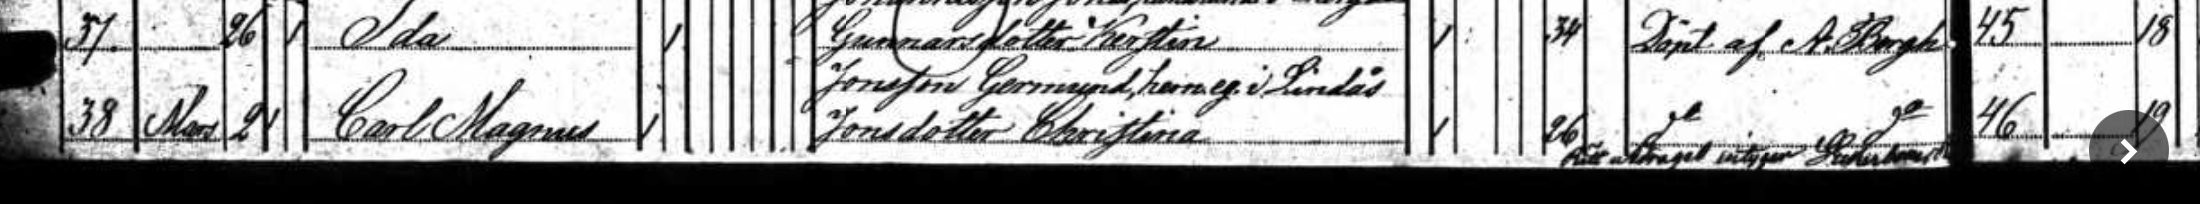 37. 26 1 Ida 1 Gunnarsdotter Kerstin 1 34 Döpt af A. Bergh. 45 18
Jonsson Germund, hem.eg. i Lindås
38 Mars 2 1 Carl Magnus 1 Jonsdotter Christina 1 26 do do 46 19
Rätt utdraget intygar